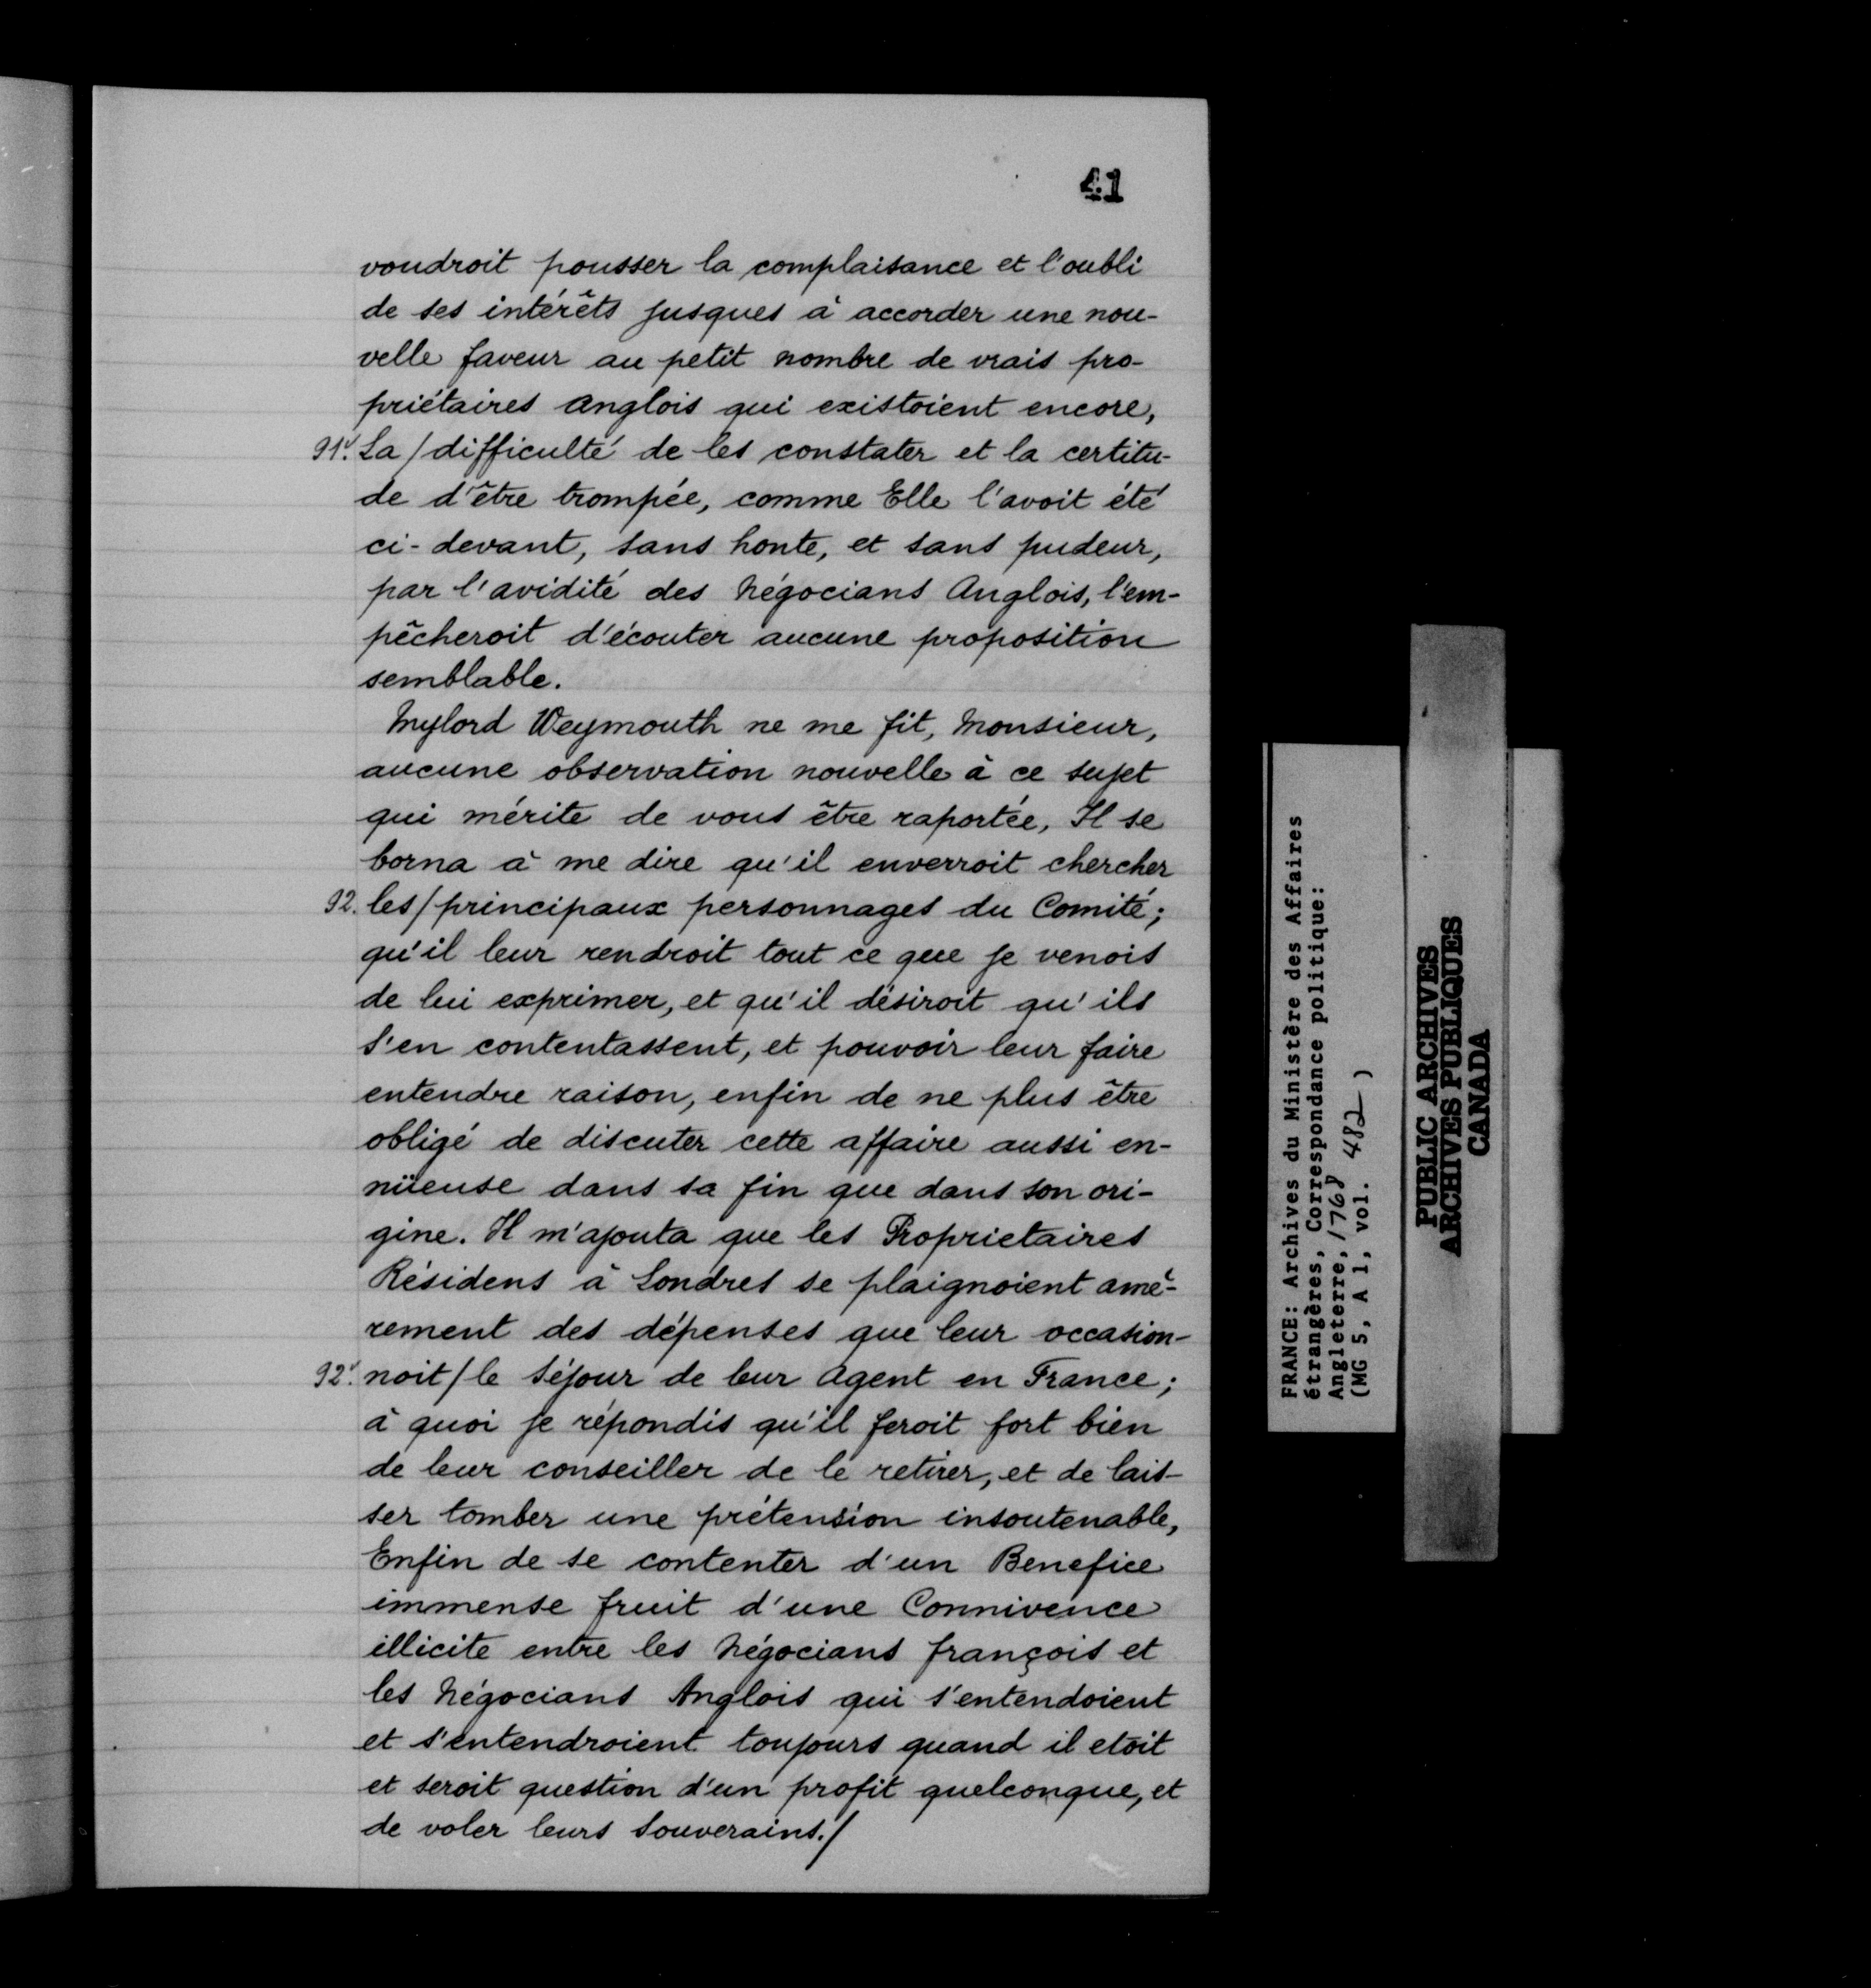 41
voudroit pousser la complaisance et l'oubli
de ses intérêts jusques à accorder une nou-
velle faveur au petit nombre de vrais pro-
priétaires Anglois qui existoient encore,
91v. La / difficulté de les constater et la certitu-
de d'être trompée, comme Elle l'avoit été
ci-devant, sans honte, et sans pudeur,
par l'avidité des Négocians Anglois, l'em-
pêcheroit d'écouter aucune proposition
semblable.
Mylord Weymouth ne me fit, Monsieur,
aucune observation nouvelle à ce sujet
qui mérite de vous être raportée, Il se
borna à me dire qu'il enverroit chercher
92. les / principaux personnages du Comité;
qu'il leur rendroit tout ce que je venois
de lui exprimer, et qu'il désiroit qu'ils
s'en contentassent, et pouvoir leur faire
entendre raison, enfin de ne plus être
obligé de discuter cette affaire aussi en-
nüeuse dans sa fin que dans son ori-
gine. Il m'ajouta que les Proprietaires
Résidens à Londres se plaignoient amè-
rement des dépenses que leur occasion-
92v. noit / le Séjour de leur Agent en France;
à quoi je répondis qu'il feroit fort bien
de leur conseiller de le retirer, et de lais-
ser tomber une prétension insoutenable,
Enfin de se contenter d'un Benefice
immense fruit d'une Connivence
illicite entre les Négocians françois et
les Négocians Anglois qui s'entendoient
et s'entendroient toujours quand il etoit
et seroit question d'un profit quelconque, et
de voler leurs Souverains./
FRANCE: Archives du Ministère des Affaires
étrangères, Correspondance politique:
Angleterre, 1768
(MG 5, A 1, vol. 482 )
PUBLIC ARCHIVES
ARCHIVES PUBLIQUES
CANADA